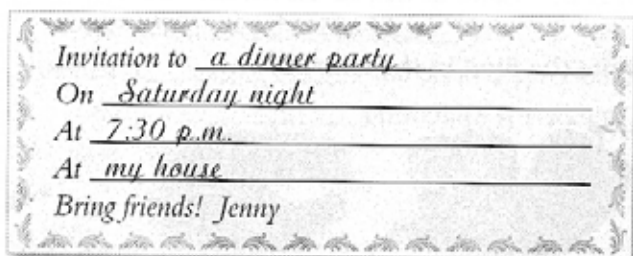 Invitation to a dinner party
On Saturday night
At 7:30 p.m.
At my house
Bring friends! Jenny